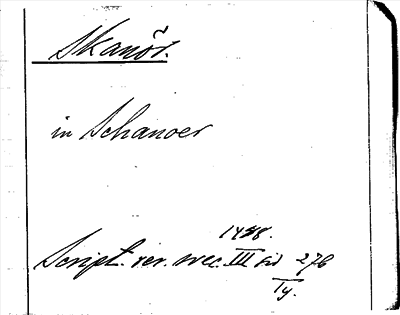 Skanör.
in Schanoer
1448.
Script. rer. svec. III sid 276
Ty.